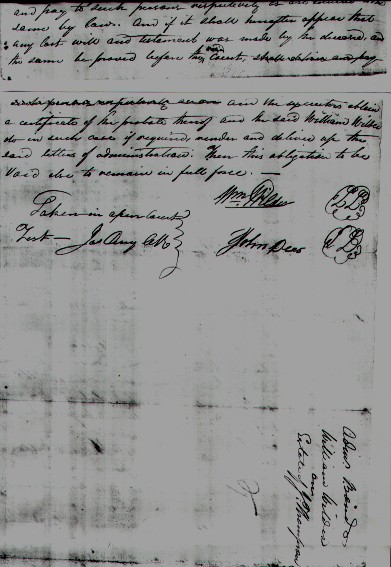 and pay to such persons respectively as are
same by law. And if it shall hereafter appear that
any last will and testament was made by the deceased, and
the same be proved before the said Court, shall deliver and pay
and the executor obtain
a certificate of the probate thereof and the said William Wilder
do in such case if required, render and deliver up the
said letters of administration. Then this obligation to be
Void else to remain in full force. —
Wm Wilder
Taken in open Court
Test — Jas
John Dees
Adms Bond
William Wilder
Estate of